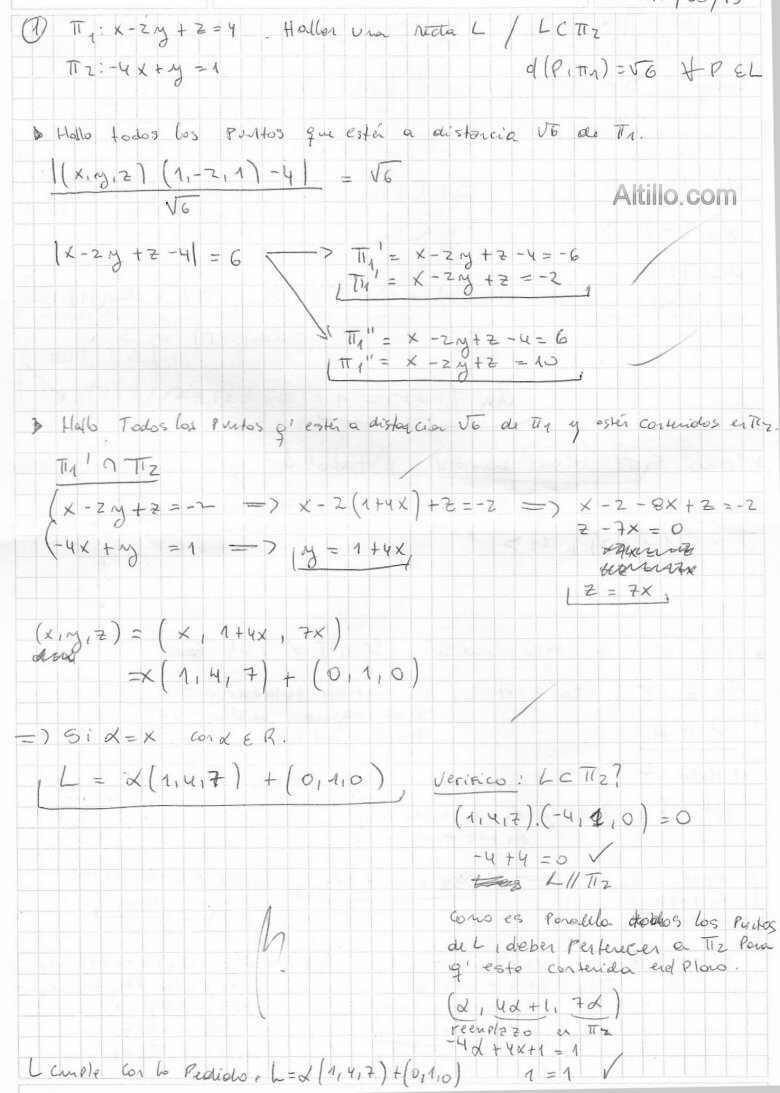 ① π₁: x-2y+z=4 . Hallar una recta L / L⊂π₂
π₂: -4x+y=1 d(P,π₁)=√6 ∀P∈L
Hallo todos los puntos que están a distancia √6 de π₁.
|(x,y,z)(1,-2,1)-4| / √6 = √6
Altillo.com
|x-2y+z-4| = 6 → π₁' = x-2y+z-4=-6
π₁' = x-2y+z=-2
π₁'' = x-2y+z-4=6
π₁'' = x-2y+z=10
Hallo Todos los puntos q' están a distancia √6 de π₁ y están contenidos en π₂.
π₁' ∩ π₂
x-2y+z=-2 => x-2(1+4x)+z=-2 => x-2-8x+z=-2
z-7x=0
-4x+y =1 => y=1+4x
z=7x
(x,y,z) = (x, 1+4x, 7x)
=x(1,4,7)+(0,1,0)
=> Si α=x con α∈R.
L = α(1,4,7)+(0,1,0)
Verifico: L⊂π₂?
(1,4,7).(-4,1,0)=0
-4+4=0 ✓
L//π₂
Como es Paralela todos los Puntos
de L, deben Pertenecer a π₂ Para
q' este contenida en el Plano.
(α, 4α+1, 7α)
reemplazo en π₂
-4α+4α+1=1
1=1 ✓
L cumple con lo Pedido. L=α(1,4,7)+(0,1,0)